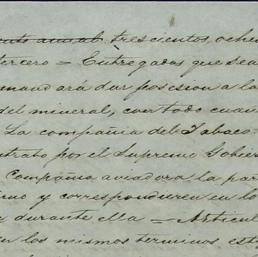 ento anual trescientos, ochen
ercero = Entregados que sea
mand ará dar posesion a la
del mineral, con todo cuan
La compañia del Tabaco
trato por el Supremo Gobier
Compañia aviadora la par
ino y correspondieren en lo
y durante ella = Articul
en los mismos terminos est